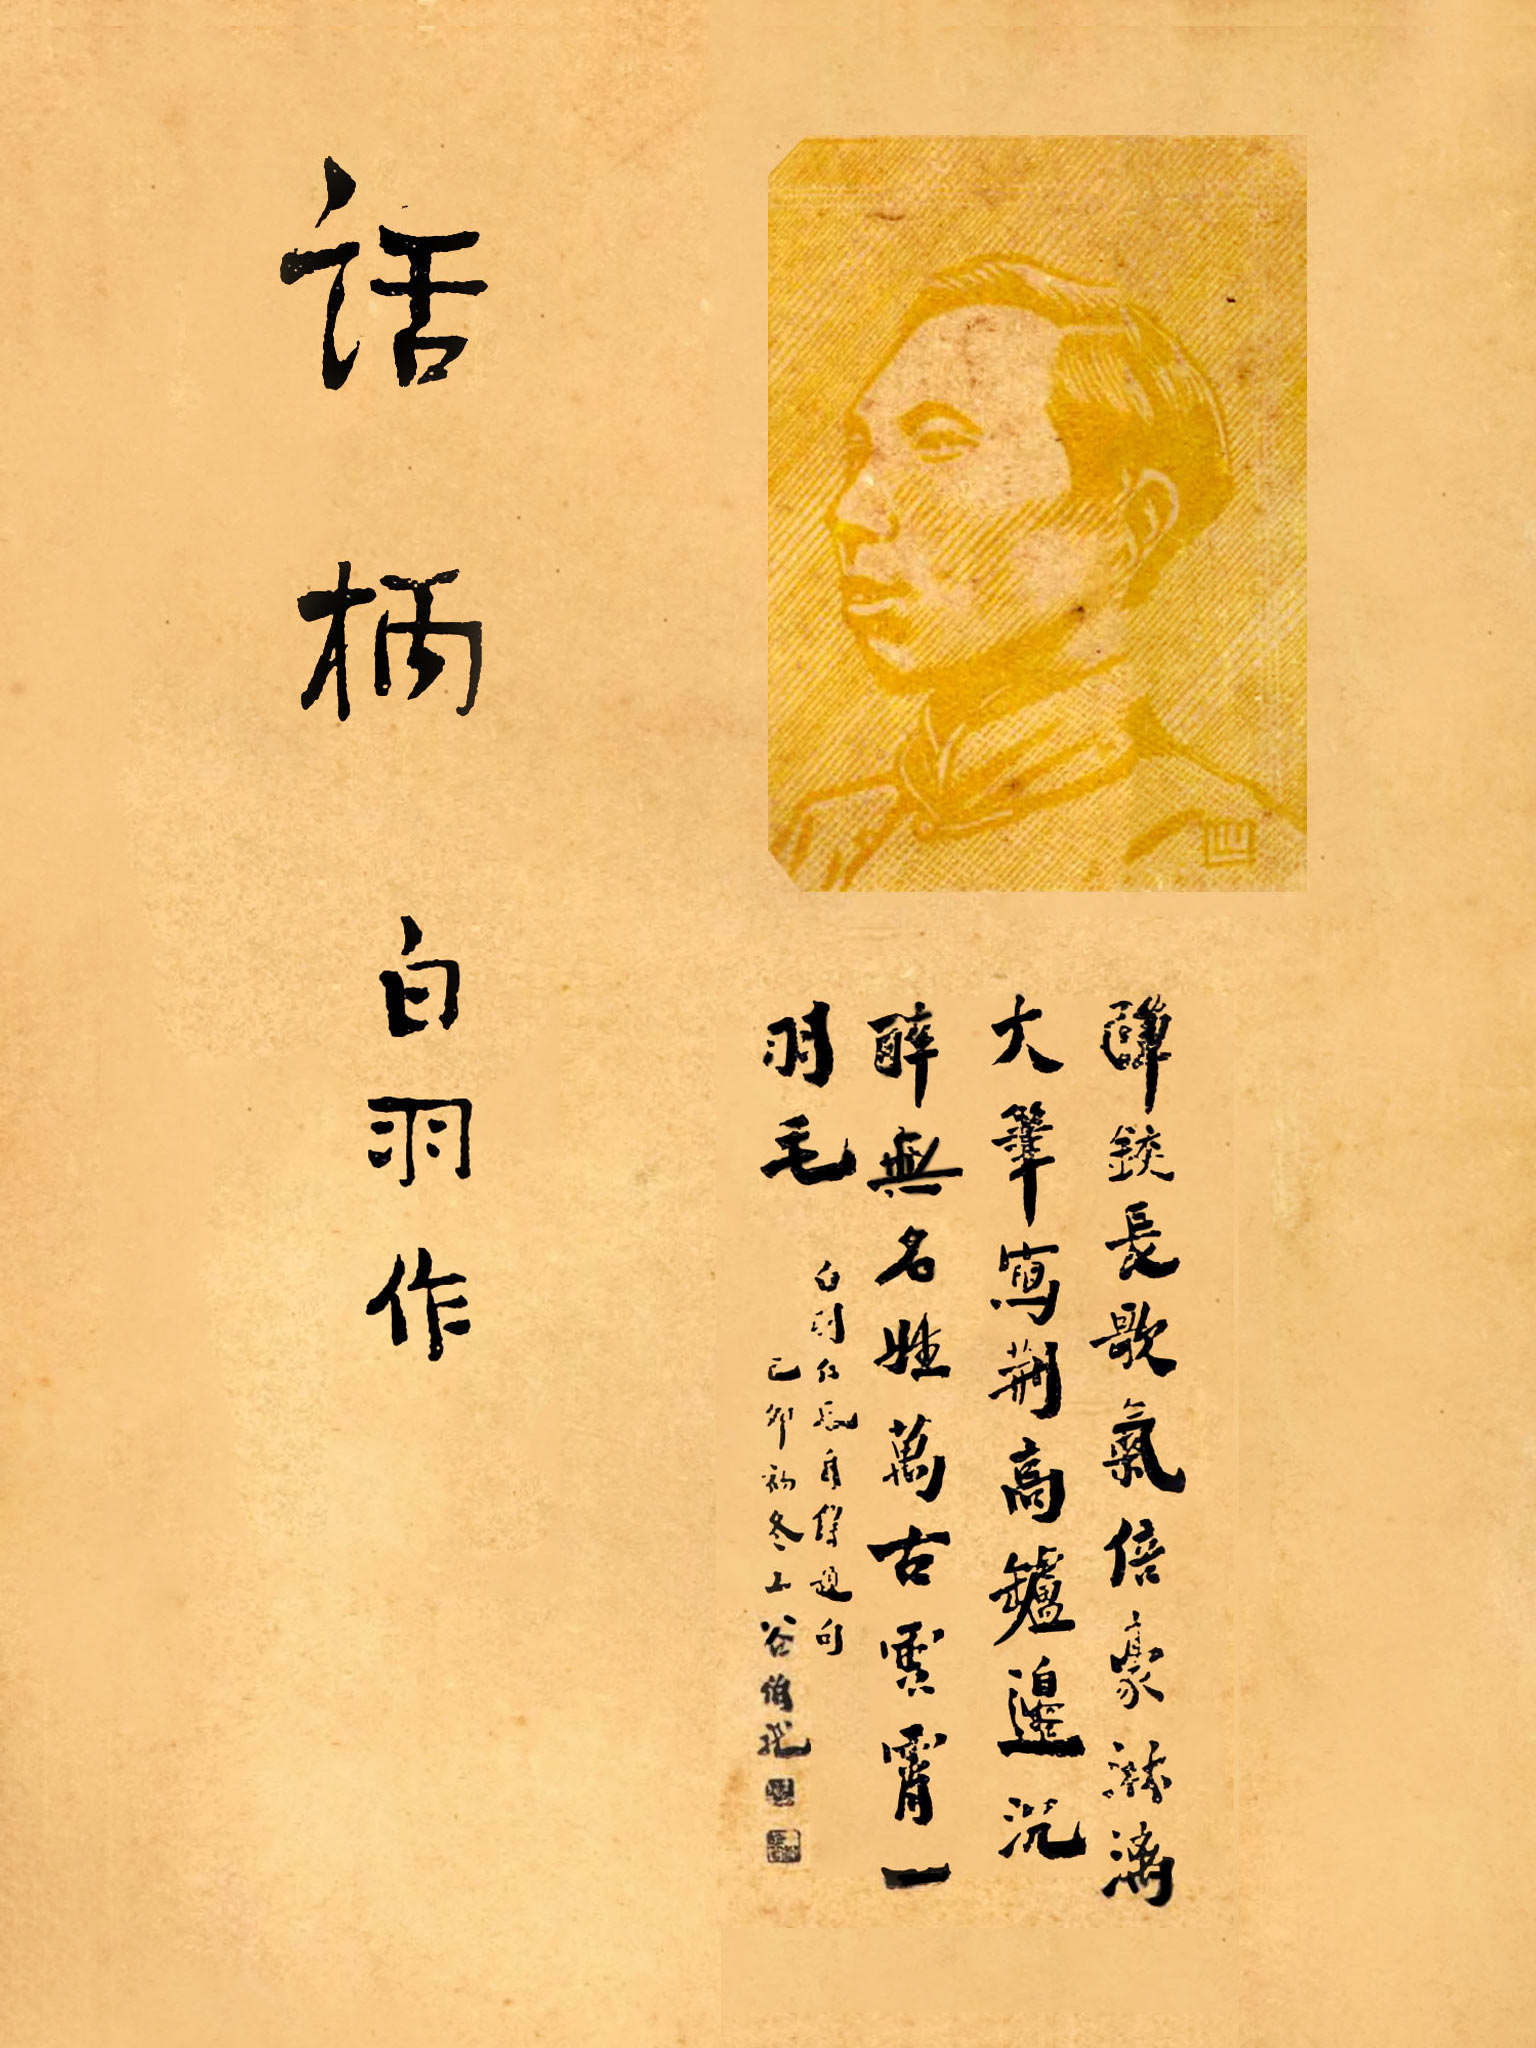 彈鋏長歌氣倍豪淋漓
大筆寫荊高罏邊沉
醉無名姓萬古雲霄一
羽毛
白羽仁兄自傳題句
己卯初冬上谷伯
話柄 白羽作